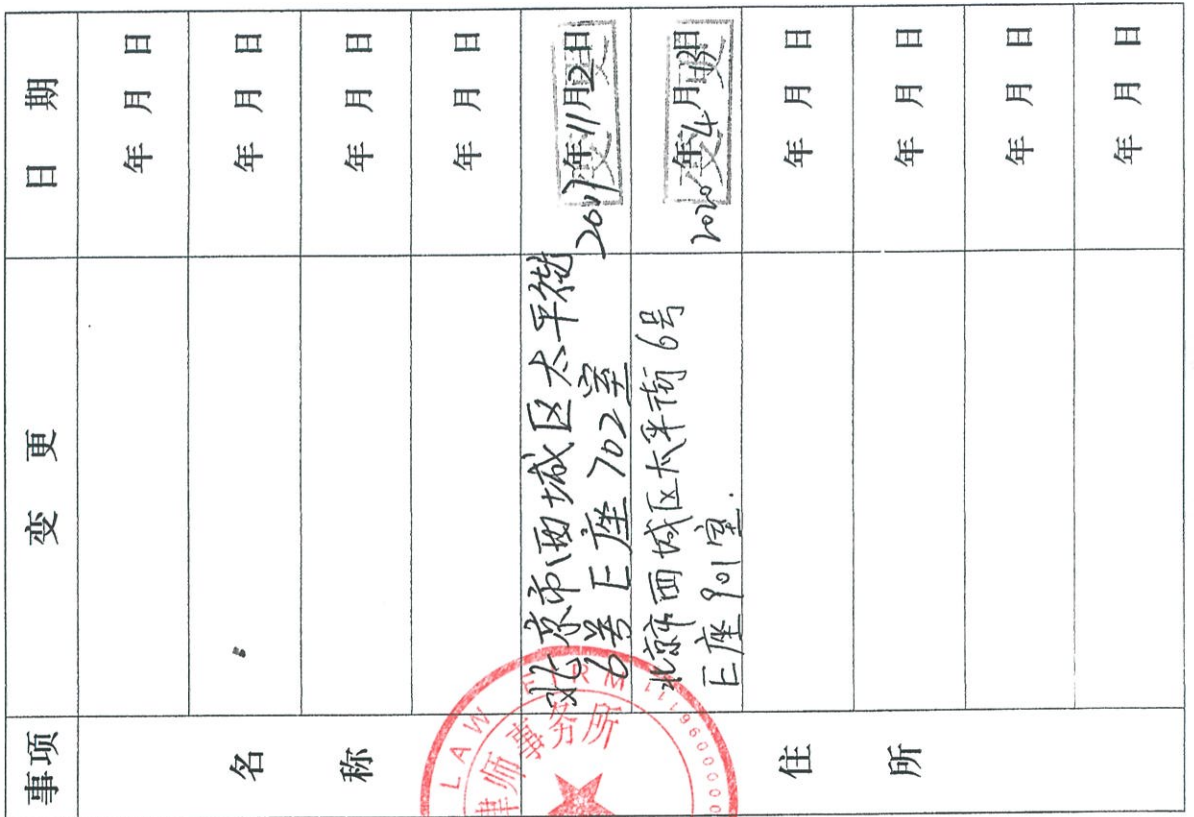 事项 变更 日期
名称
年 月 日
年 月 日
年 月 日
年 月 日
住所
北京市西城区太平街
6号E座702室
2017年11月2日
北京市西城区太平街6号
E座901室.
2020年4月13日
年 月 日
年 月 日
年 月 日
年 月 日
LAW FIRM
律师事务所